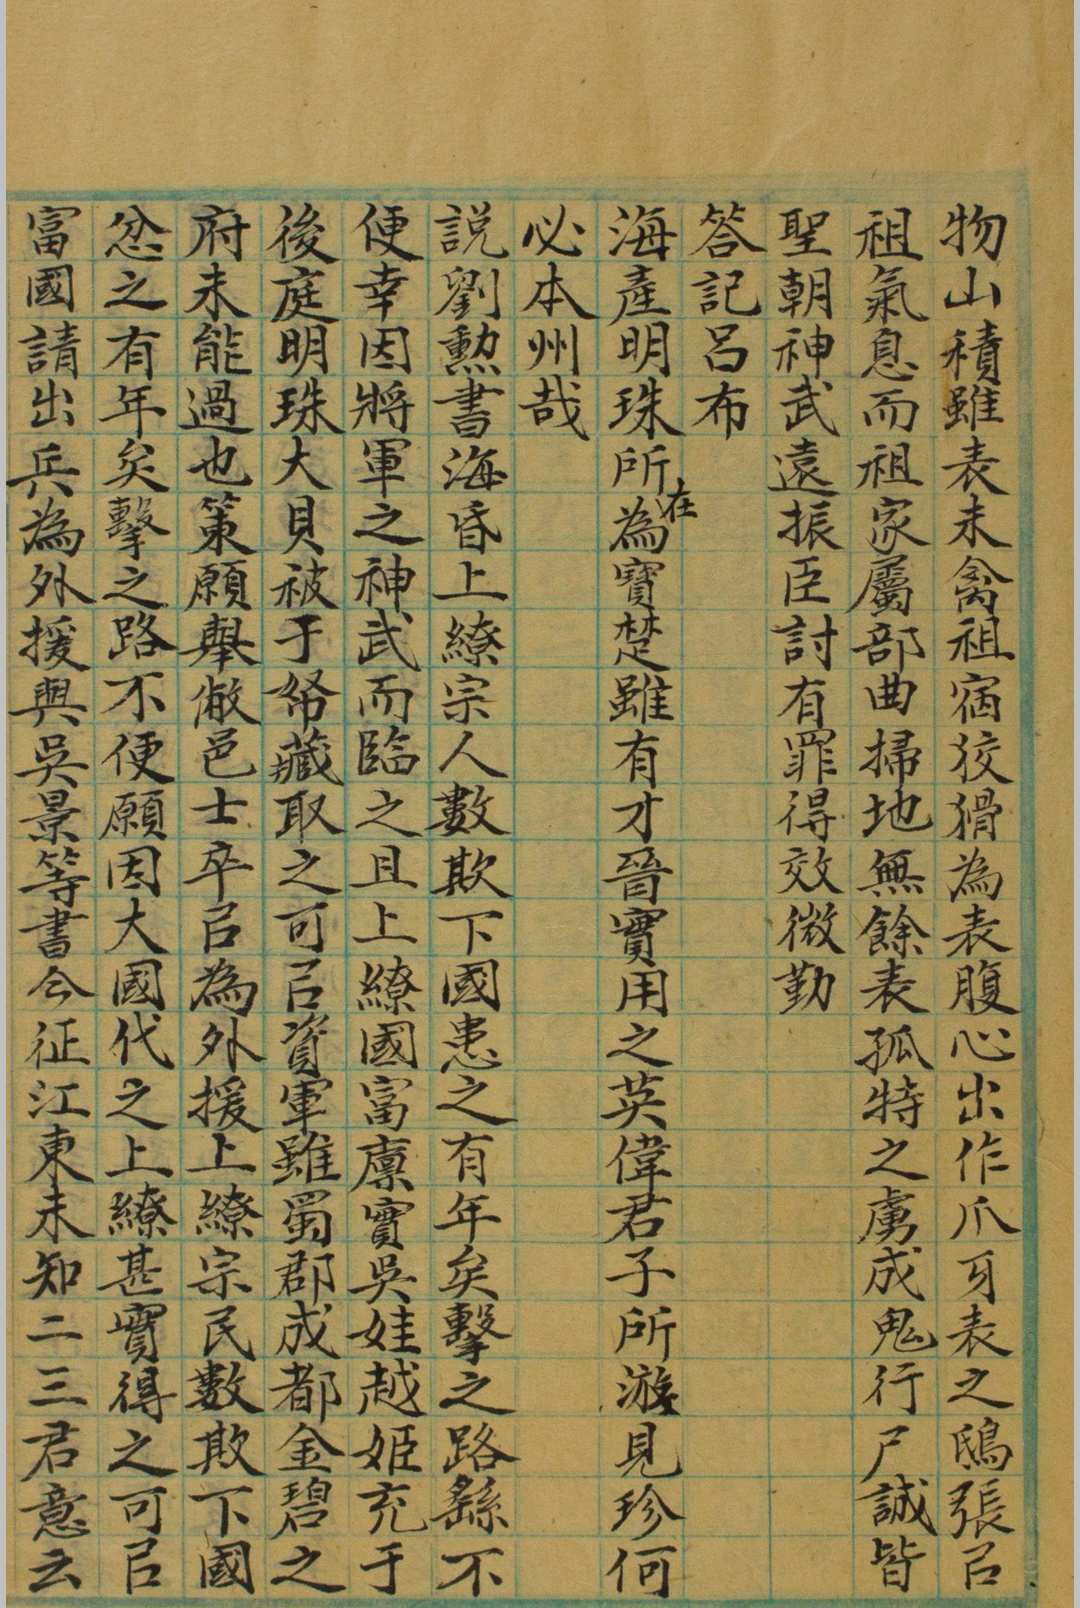 物山積雖表未禽祖宿狡猾為表腹心出作爪牙表之鴟張㠯
祖氣息而祖家屬部曲掃地無餘表孤特之虜成鬼行尸誠皆
聖朝神武遠振臣討有罪得效微勤
答記呂布
海產明珠所在為寶楚雖有才晉實用之英偉君子所游見珍何
必本州哉
說劉勳書海昏上繚宗人數欺下國患之有年矣擊之路繇不
便幸因將軍之神武而臨之且上繚國富廩實吳娃越姬充于
後庭明珠大貝被于帑藏取之可㠯資軍雖蜀郡成都金碧之
府未能過也策願舉敝邑士卒㠯為外援上繚宗民數欺下國
忿之有年矣擊之路不便願因大國代之上繚甚實得之可㠯
富國請出兵為外援與吳景等書今征江東未知二三君意云